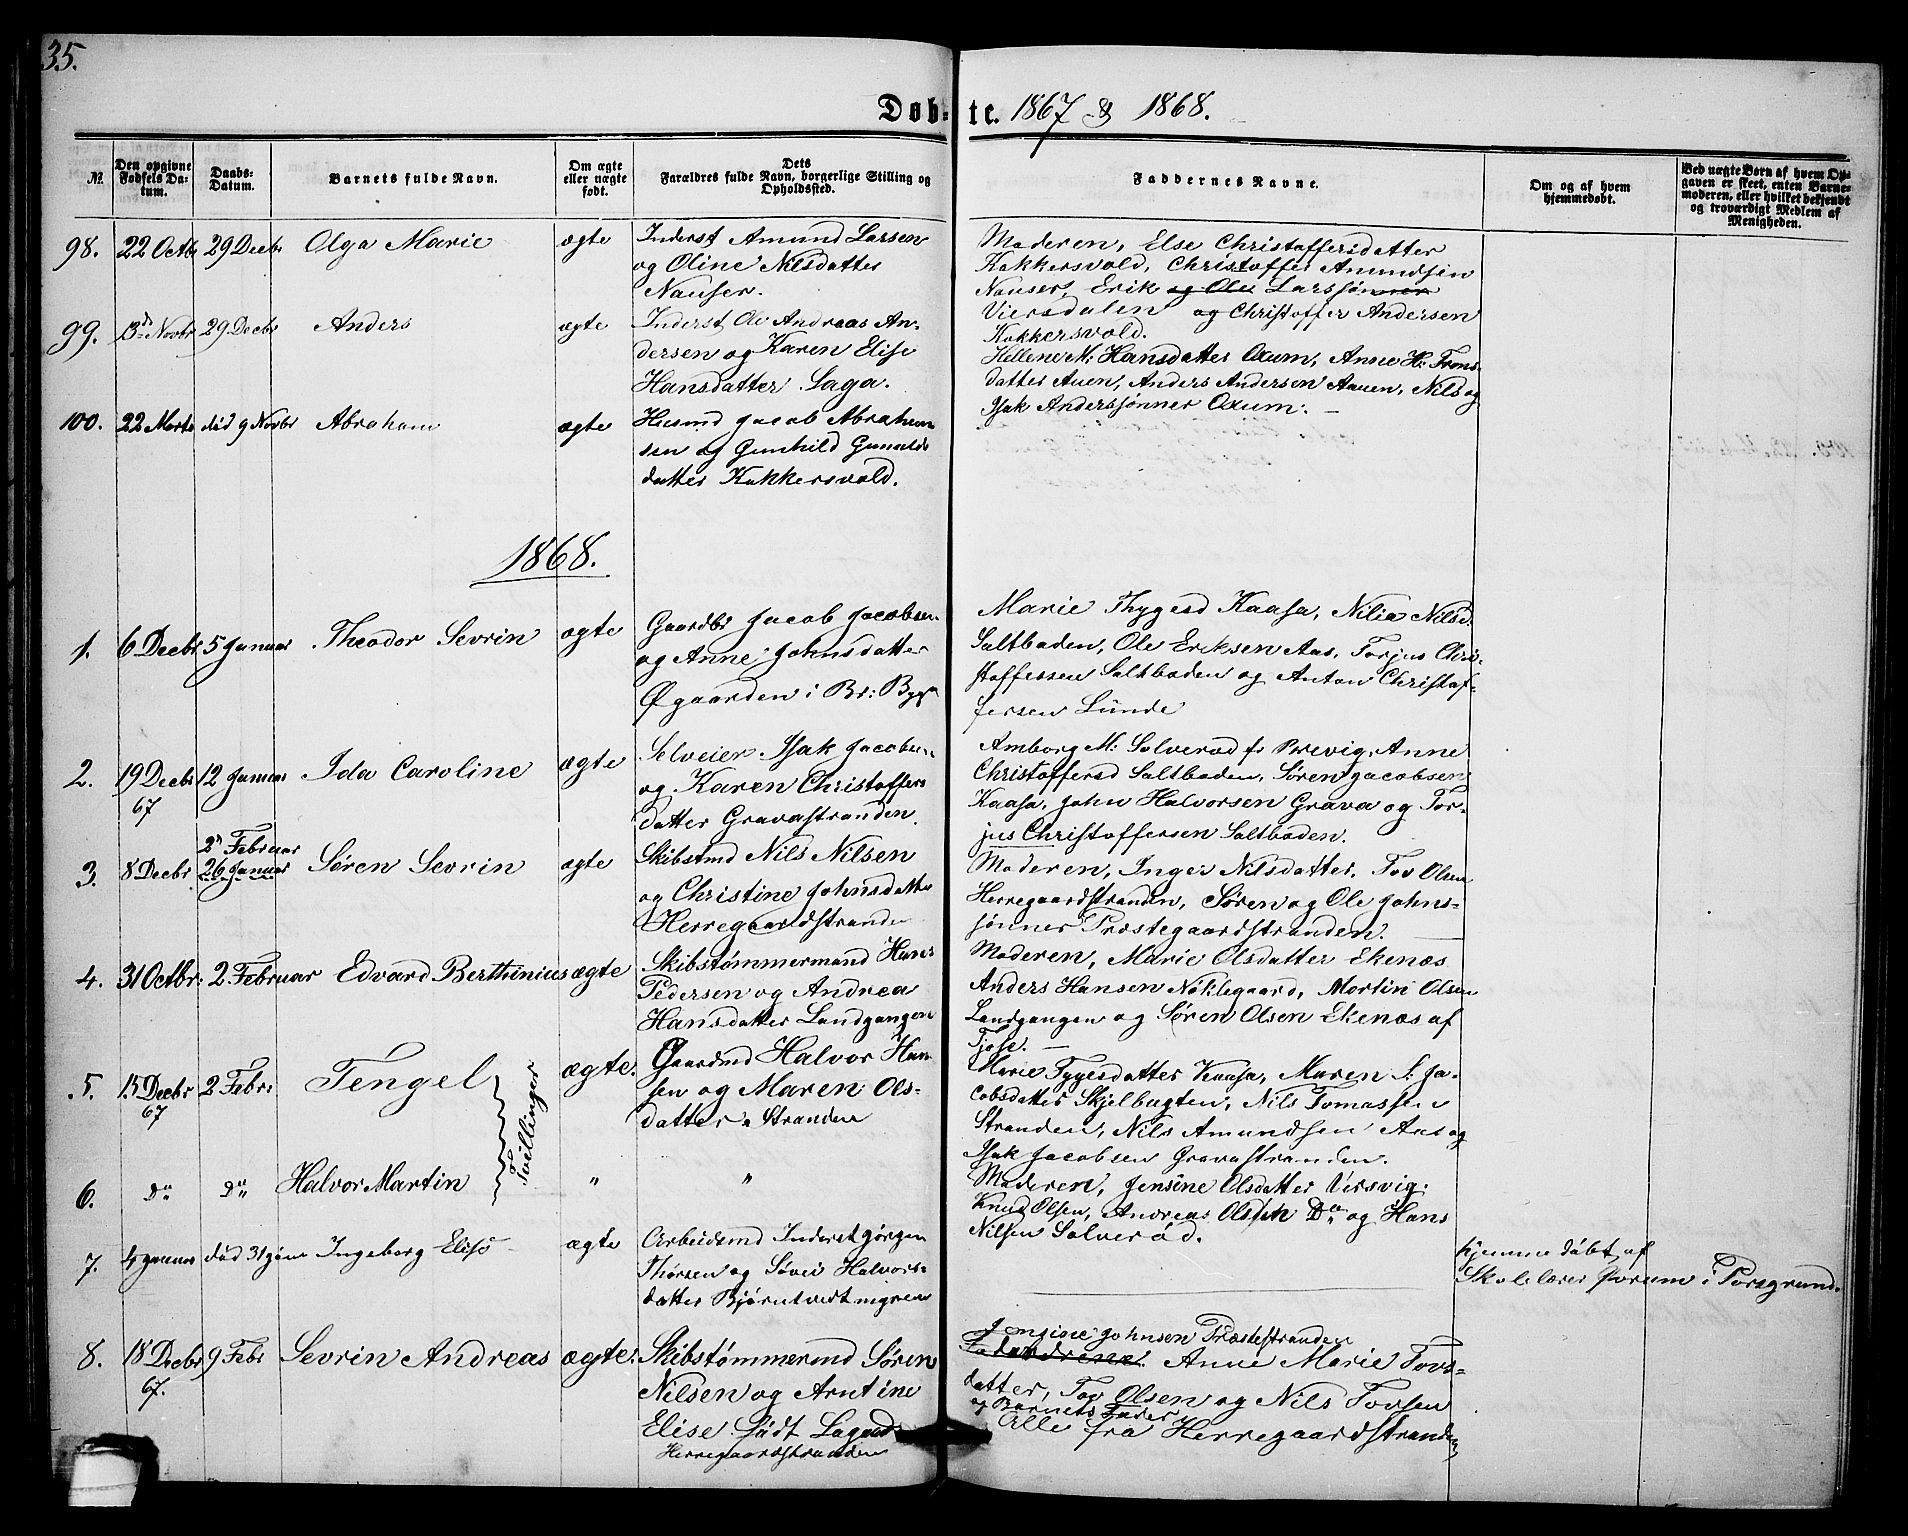 35.
Døbte. 1867 & 1868.
№
Den opgivne Fødsels Datum.
Daabs-Datum.
Barnets fulde Navn.
Om ægte eller uægte født.
Dets Forældres fulde Navn, borgerlige Stilling og Opholdsted.
Faddernes Navne.
Om og af hvem hjemmedøbt.
Ved uægte Børn af hvem Opgaven er skeet, enten Barnemoderen, eller hvilket bekjendt og troværdigt Medlem af Menigheden.
98. 22 Octbr 29 Decbr Olga Marie ægte
Inderst Amund Larsen
og Oline Nilsdatter
Nauser.
Moderen, Else Christoffersdatter
Kokkersvold, Christoffer Amundsen
Nauser, Erik og Ole Larssønner
Viersdalen og Christoffer Andersen
Kokkersvold.
99. 13d Novbr 29 Decbr Anders ægte
Inderst Ole Andreas An-
dersen og Karen Elise
Hansdatter Saga.
Hellene M. Hansdatter Oxum, Anne H. Trons-
datter Auen, Anders Andersen Auen, Nils og
Isak Anderssønner Oxum.
100. 22 Marts død 9 Novbr Abraham ægte
Husmd Jacob Abraham-
sen og Gunhild Gunulds
datter Kokkersvold.
1868.
1. 6 Decbr 5 Januar Theodor Sevrin ægte
Gaardbr Jacob Jacobsen
og Anne Johnsdatter
Øgaarden i Br: Bygn
Marie Thygesd Kaasa, Nilia Nilsd.
Saltboden, Ole Eriksen Aas, Torjus Chri-
stoffersen Saltboden og Anton Christof-
fersen Lunde
2. 19 Decbr 67 12 Januar Ida Caroline ægte
Selveier Isak Jacobsen
og Karen Christoffers
datter Gravastranden.
Amborg M: Solverød fr Brevig, Anne
Christoffersd Saltboden, Søren Jacobsen
Kaasa, John Halvorsen Grava og Tor-
jus Christoffersen Saltboden.
3. 8 Decbr 2d Februar 26 Januar Søren Sevrin ægte
Skibstmd Nils Nilsen
og Christine Johnsdatter
Herregaardstranden
Moderen, Inger Nilsdatter, Tov Olsen
Herregaardstranden, Søren og Ole Johns-
sønner Præstegaardstranden.
4. 31 Octbr: 2 Februar Edvard Berthinius ægte
Skibstømmermand Hans
Pedersen og Andrea
Hansdatter Landgangen
Moderen, Marie Olsdatter Ekenæs
Anders Hansen Nøklegaard, Mortin Olsen
Landgangen og Søren Olsen Ekenæs af
Tjose.
5. 15 Decbr 67 2 Febr Tengel ægte.
Tvillinger
Gaardmd Halvor Han-
sen og Maren Ols-
datter Stranden
Marie Tygesdatter Kaasa, Maren S. Ja-
cobsdatter Skjelbugten, Nils Tomassen
Stranden, Nils Amundsen Aas og
Isak Jacobsen Gravastranden.
6. do do Halvor Martin " "
Moderen, Jensine Olsdatter Versvig,
Knud Olsen, Andreas Olsen Do og Hans
Nilsen Solverød.
7. 4 Januar død 31 Jan Ingeborg Elise ægte
Arbeidsmd Inderst Jørgen
Thorsen og Søvei Halvors-
datter Bjørntvert
hjemmedøbt af
Skolelærer Øvrum i Porsgrund.
8. 18 Decbr 67. 9 Febr Sevrin Andreas ægte.
Skibstømmermd Søren
Nilsen og Arntine
Elise født
Herregaardstranden
Jensine Johnsen Præstestranden
Anne Marie Tovs-
datter, Tov Olsen og Nils Tovsen
og Barnets Fader,
Alle fra Herregaardstranden